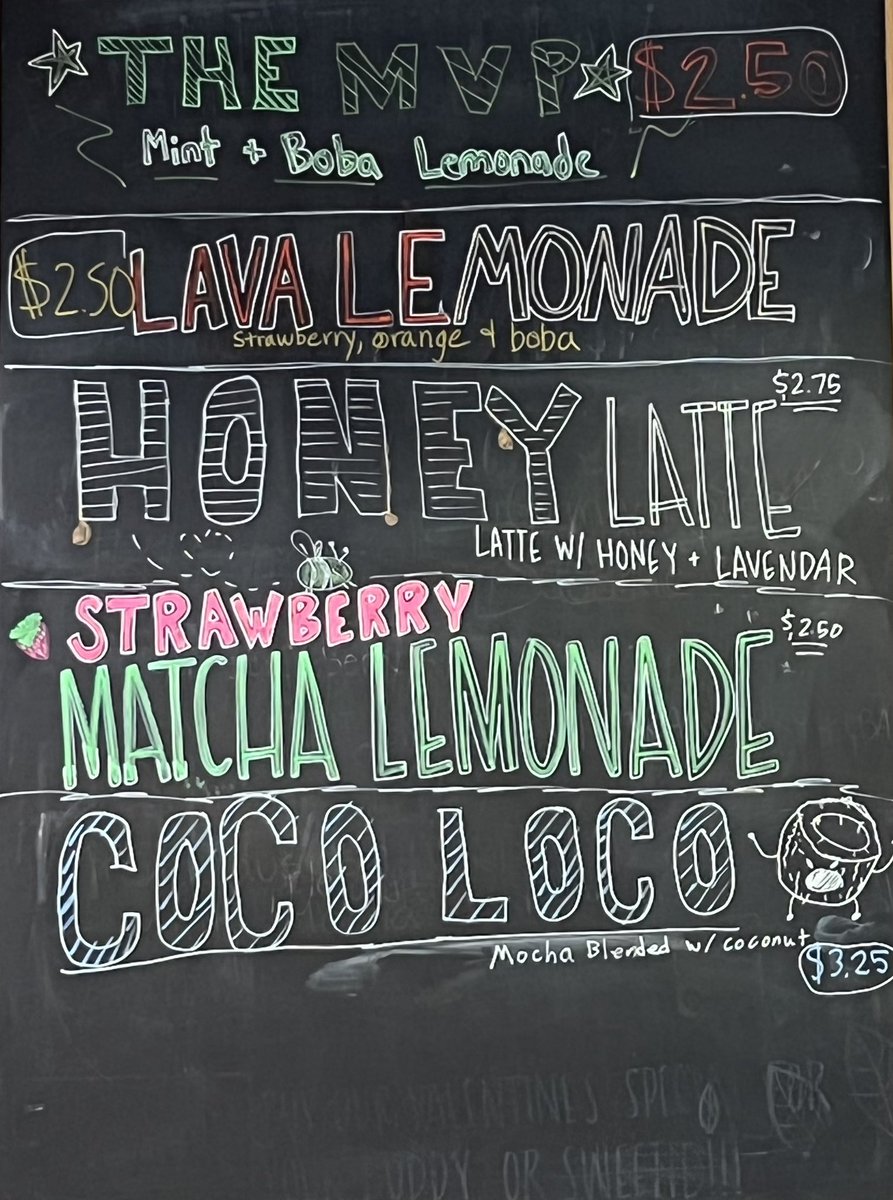 THE MVP $2.50
Mint + Boba Lemonade
$2.50 LAVA LEMONADE
strawberry, orange & boba
HONEY LATTE $2.75
LATTE W/ HONEY + LAVENDAR
STRAWBERRY
MATCHA LEMONADE $2.50
COCO LOCO
Mocha Blended w/ coconut
$3.25
VALENTINES
OR SWEETIE!!!